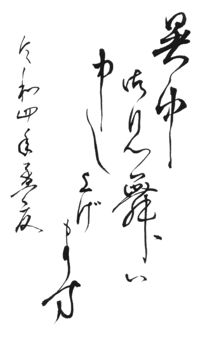 暑中
御見舞い
申し上げます
令和四年盛夏